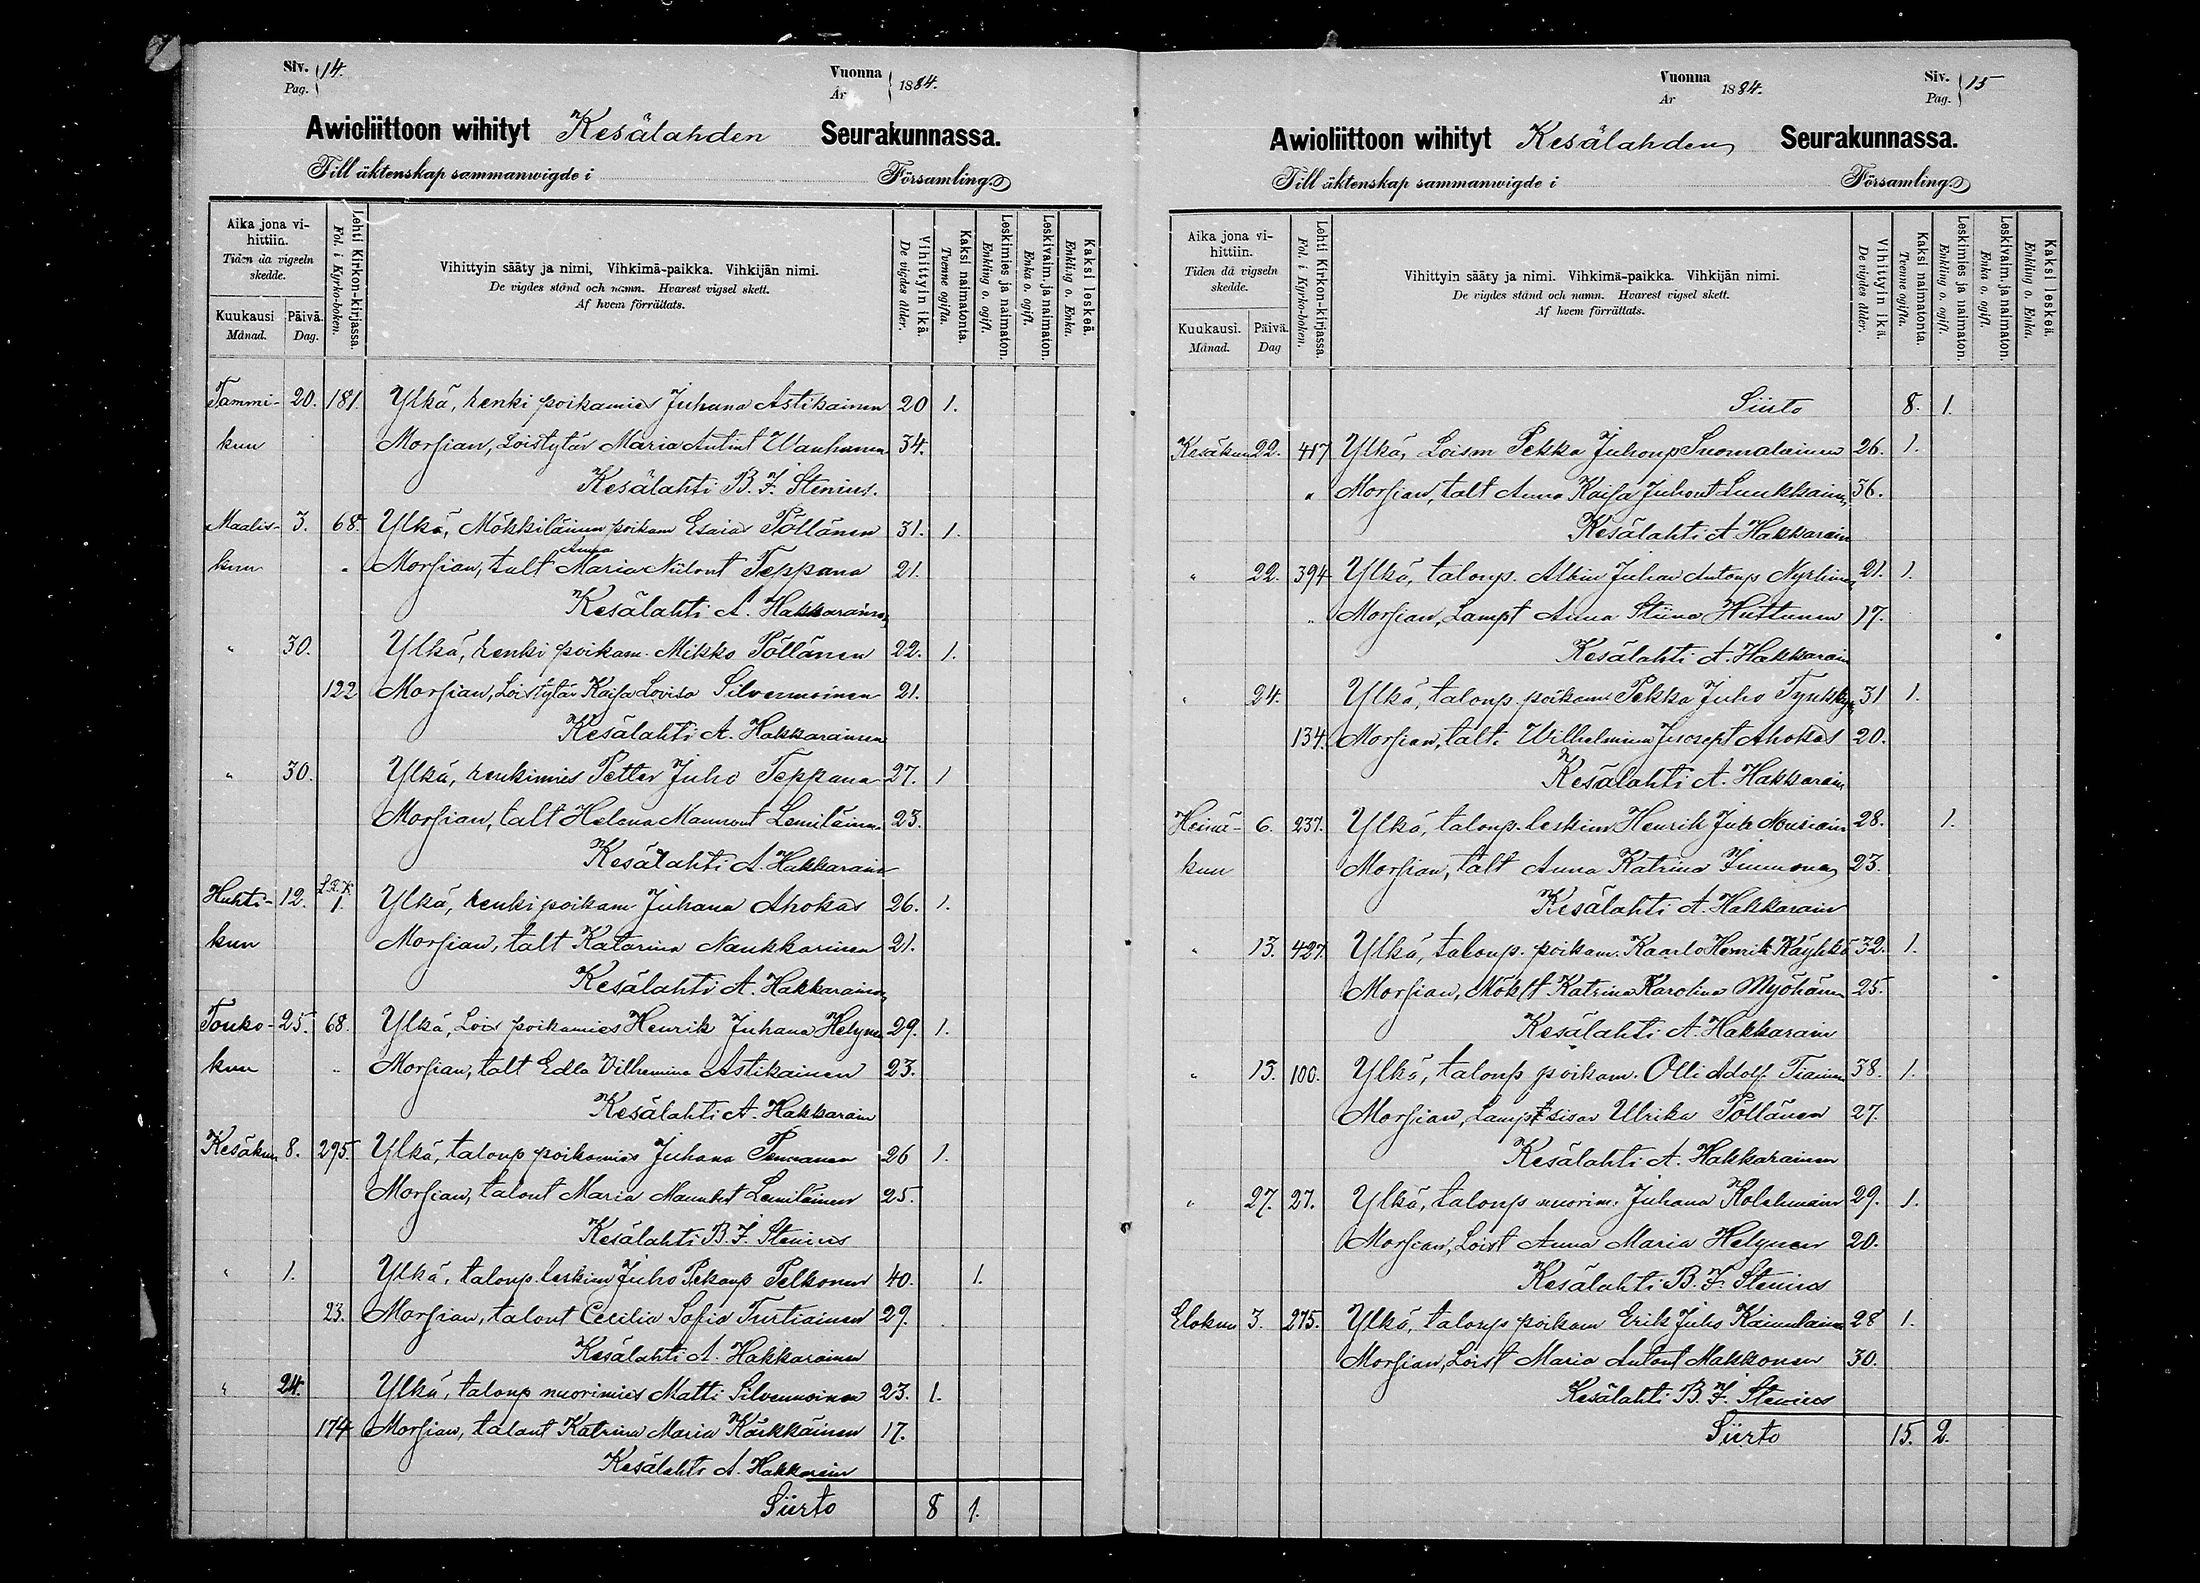 Siv. Pag. 14.
Vuonna År 1884.
Awioliittoon wihityt Kesälahden Seurakunnassa.
Till äktenskap sammanwigde i Församling.
Aika jona vihittiin. Tiden da vigseln skedde.
Kuukausi Månad. Päivä. Dag.
Lehti Kirkon-kirjassa. Fol. i Kyrko-boken.
Vihittyin sääty ja nimi, Vihkimä-paikka. Vihkijän nimi.
De vigdes stånd och namn. Hvarest vigsel skett.
Af hvem förrättats.
Vihittyin ikä. De vigdes ålder.
Kaksi naimatonta. Tvenne ogifta.
Leskimies ja naimaton. Enkling o. ogift.
Leskivaim. ja naimaton. Enka o. ogift.
Kaksi leskeä. Enkling o. Enka.
Tammi- 20. 181. Ylkä, renki poikamies Juhana Astikainen 20 1.
kun Morsian, Loistytär Maria Antint Wanhanen 34.
Kesälahti B. F. Stenius.
Maalis- 3. 68. Ylkä, Mökkiläinen poikam Esaias Pöllänen 31. 1.
kun " Morsian, talt Anna Maria Niilont Teppana 21.
Kesälahti A. Hakkarainen
" 30. Ylkä, renki poikam. Mikko Pöllänen 22. 1.
122 Morsian, Loistytär Kaisa Lovisa Silvennoinen 21.
Kesälahti A. Hakkarainen
" 30. Ylkä, renkimies Petter Juho Teppana 27. 1
Morsian, talt Helena Lemiläinen 23.
Kesälahti A. Hakkarain
Huhti- 12. 1. Ylkä, renki poikam Juhana Ahokas 26. 1.
kun Morsian, talt Katarina Naukkarinen 21.
Kesälahti A. Hakkarainen
Touko- 25. 68. Ylkä, Lois poikamies Henrik Juhana Helynen 29. 1.
kun " Morsian, talt Edla Vilhemina Astikainen 23.
Kesälahti A. Hakkarain
Kesäkun 8. 295. Ylkä, taloup poikamies Juhana 26 1.
Morsian, talont Maria Lemiläinen 25.
Kesälahti B. F. Stenius
" 1. Ylkä, taloup. leskim Juho Pekanp Pelkonen 40. 1.
23. Morsian, talont Cecilia Sofia Turtiainen 29.
Kesälahti A. Hakkarainen
" 24. Ylkä, taloup nuorimies Matti Silvennoinen 23. 1.
174 Morsian, talont Katrina Maria Kärkkäinen 17.
Kesälahti A. Hakkarain
Siirto 8 1.
Vuonna År 1884.
Siv. Pag. 15
Awioliittoon wihityt Kesälahden Seurakunnassa.
Till äktenskap sammanwigde i Församling.
Aika jona vihittiin. Tiden då vigseln skedde.
Kuukausi. Månad. Päivä. Dag
Lehti Kirkon-kirjassa. Fol. i Kyrko-boken.
Vihittyin sääty ja nimi. Vihkimä-paikka. Vihkijän nimi.
De vigdes stånd och namn. Hvarest vigsel skett.
Af hvem förrättats.
Vihittyin ikä. De vigdes ålder.
Kaksi naimatonta. Tvenne ogifta.
Leskimies ja naimaton. Enkling o. ogift.
Leskivaim. ja naimaton. Enka o. ogift.
Kaksi leskeä. Enkling o. Enka.
Siirto 8. 1.
Kesäkun 22. 417 Ylkä, Loism Pekka Juhonp Suomalainen 26. 1.
" Morsian, talt Anna Kaisa Juhont Luukkainen 36.
Kesälahti A. Hakkarain
" 22. 394 Ylkä, taloup. Albin Juhan Antonp 21. 1.
" Morsian, Lampt Anna Stiina Huttunen 17.
Kesälahti A. Hakkarain
" 24. Ylkä, taloup. poikam Pekka Juho Tynkkyn 31 1.
134. Morsian, talt. Wilhelmina Ahokas 20.
Kesälahti A. Hakkarain
Heinä- 6. 237. Ylkä, taloup. leskim Henrik Juh Nousiain 28. 1.
kun Morsian, talt Anna Katrina Immonen 23.
Kesälahti A. Hakkarain
" 13. 427. Ylkä, taloup. poikam. Kaarlo Henrik Käyhkö 32. 1.
Morsian, Mökst Katrina Karolina Myöhänen 25.
Kesälahti A. Hakkarain
" 13. 100. Ylkä, taloup poikam. Olli Adolf Tiainen 38. 1.
Morsian, Lampt sisar Ulrika Pöllänen 27.
Kesälahti A. Hakkarainen
" 27. 27. Ylkä, taloup nuorim. Juhana Kolehmain 29. 1.
Morsian, Loist Anna Maria Helynen 20.
Kesälahti B. F. Stenius
Elokun 3. 275. Ylkä, taloup poikam Erik Juho Kainulainen 28 1.
Morsian, Loist Maria Antont Makkonen 30.
Kesälahti B. F. Stenius
Siirto 15. 2.